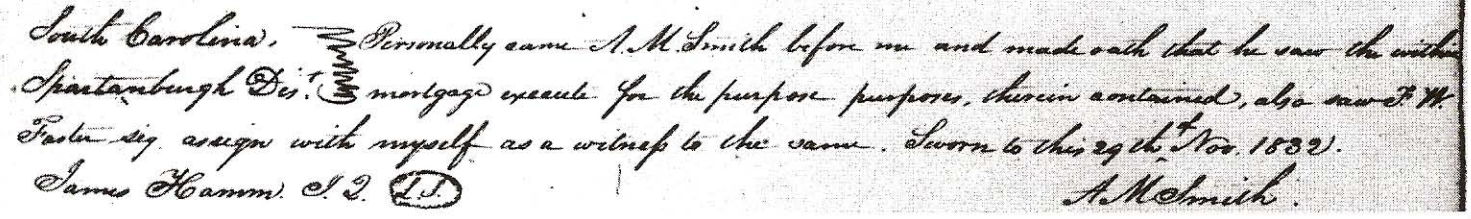 South Carolina. Personally came A. M. Smith before me and made oath that he saw the within
Spartanburgh Dist. mortgage execute for the purpose purposes, therein contained, also saw F. W.
Foster sig assign with myself as a witness to the same. Sworn to this 29th Nov. 1832.
James Hamm. J. Q. L.S. A M Smith.